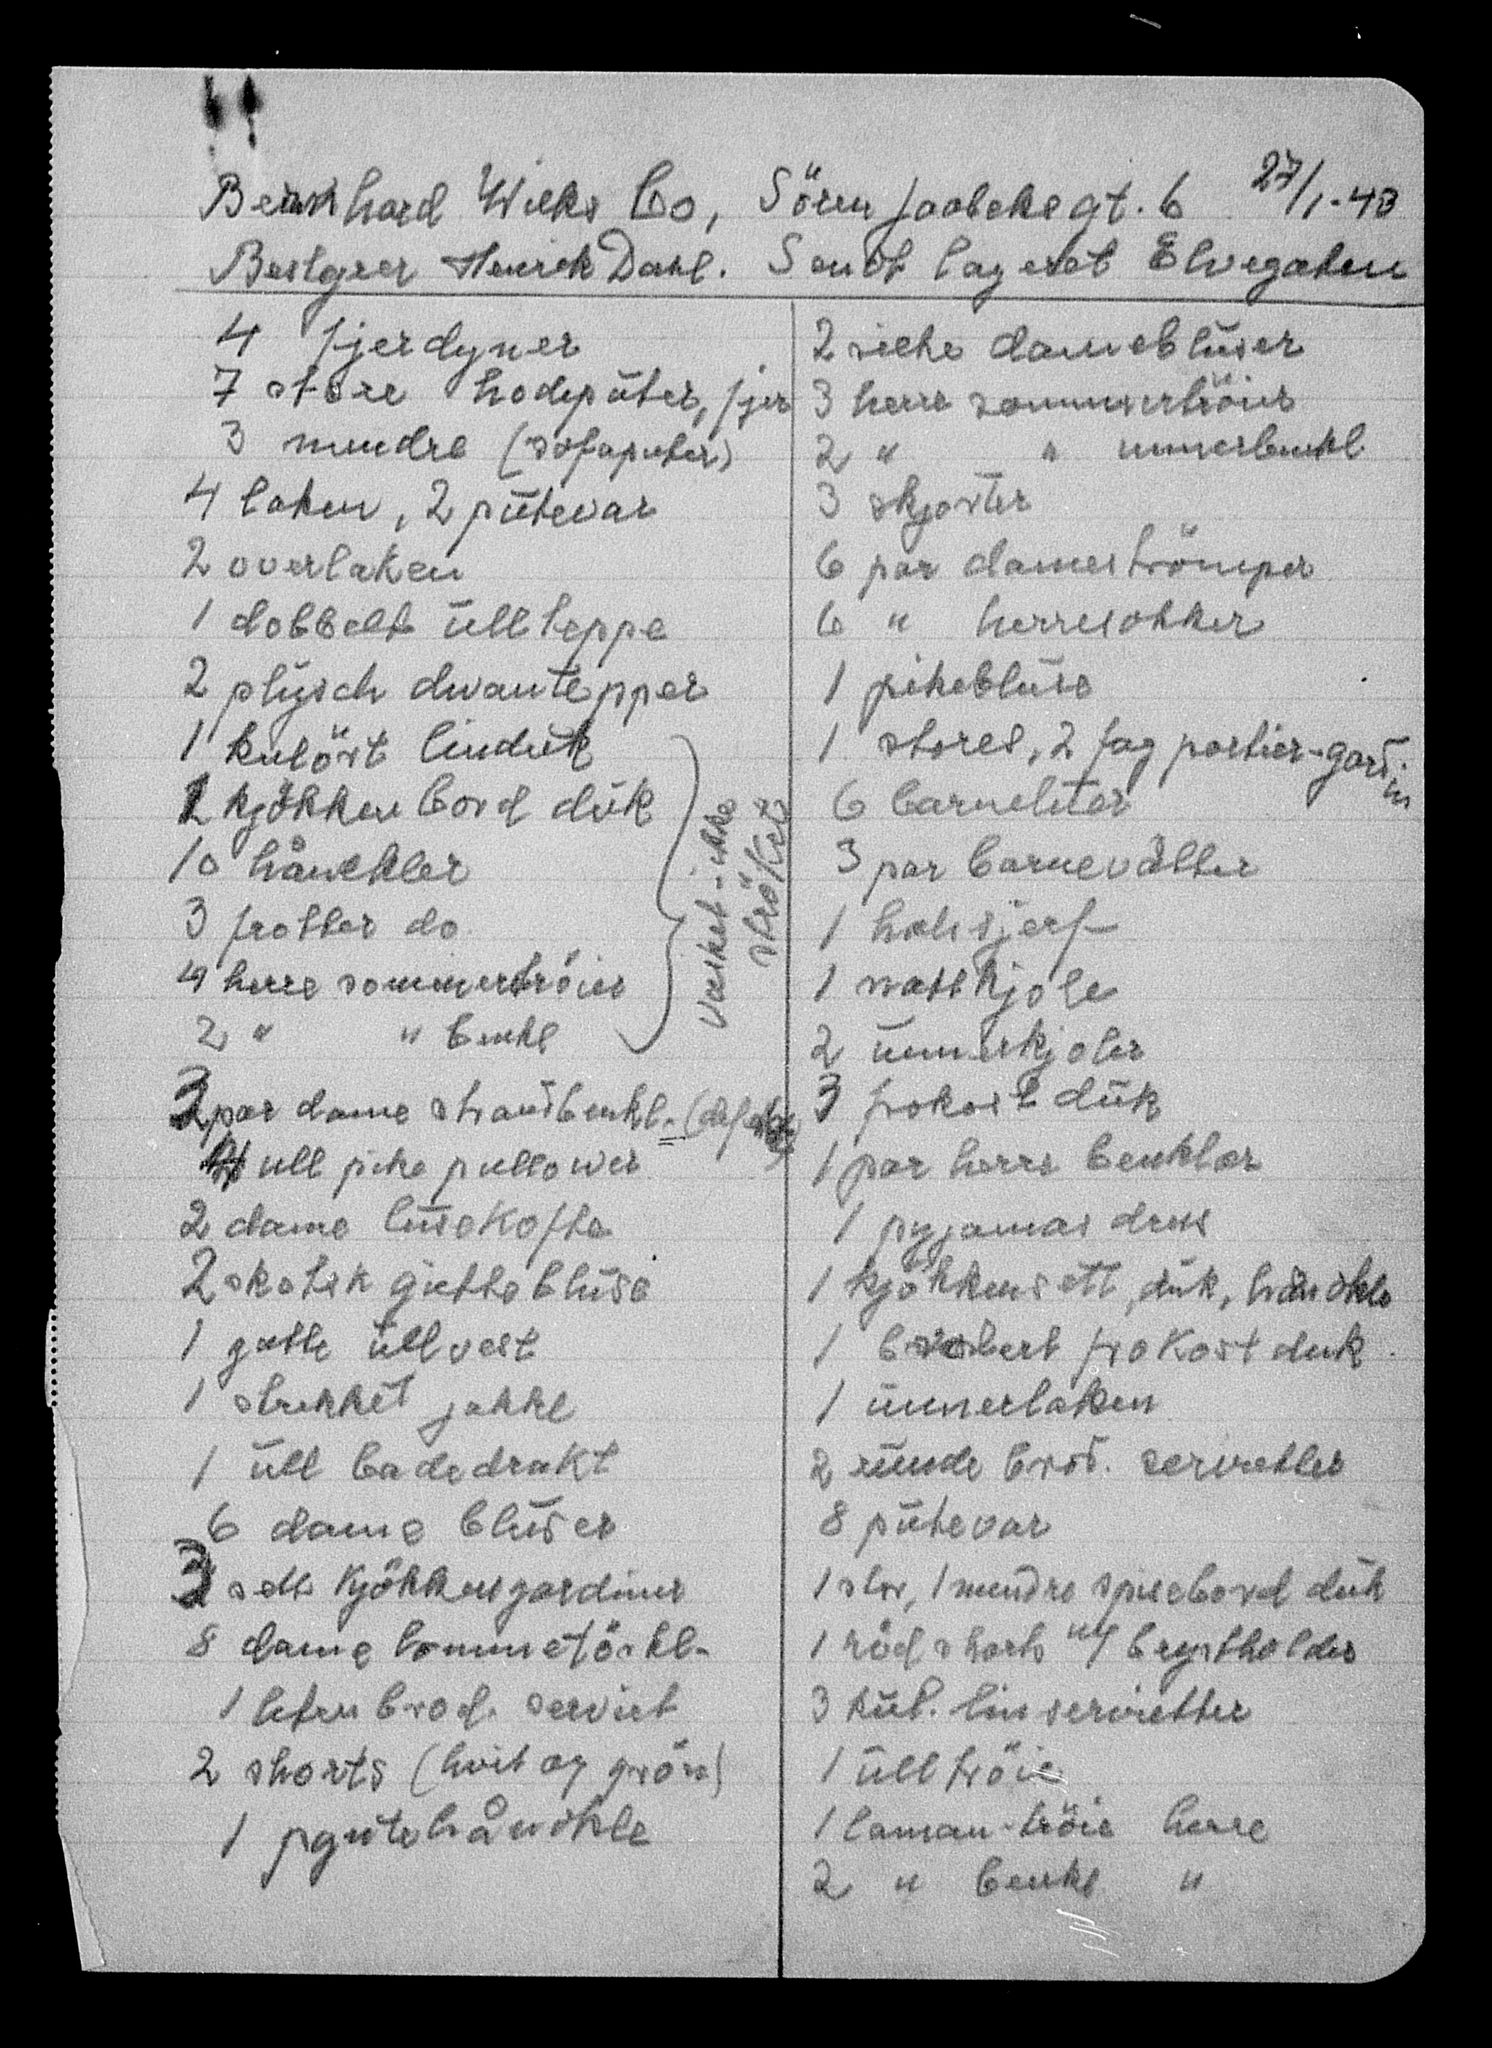 Bernhard Wilks Co, Sören Jaabeks gt. 6 27/1-43
Bestyrer Henrick Dahl. Sendt lageret Elvegaten
4 fjerdyner
7 store hodepüter, fjer
3 mindre (sofaputer)
4 laken, 2 pütevar
2 overlaken
1 dobbelt üllteppe
2 plüsch divantepper
1 kulört lindük
1 kjökkenbord dük
10 håndklær
3 frotter do
4 herre sommertröier
2 " " benkl
vasket - ikke ströket
3 par dame
ull pike pullower
2 dame lüsekofte
2 skotsk gutteblüse
1 gutte üllvest
1 strikket jakke
1 üll badedrakt
6 dame blüser
3 sett kjökkengardiner
8 dame lommetörkl.
1 liten brod. serviet
2 shorts (hvit og grön)
1 pyntehåndkle
2 silke dameblüser
3 herre sommertröier
2 " " unnerbenkl
3 skjorter
6 par dameströmper
6 " herresokker
1 pikeblüse
1 stores, 2 fag portier-gardin
6 barneluer
3 par barnevåtter
1 halsskjerf
1 nattkjole
2 ünnerkjoler
3 frokost dük
1 par herre benklær
1 pyjamas dress
1 kjökkensett, dük, håndkle
1 frokost duk
1 ünnerlaken
2 ründe brod. servietter
8 pütevar
1 stor, 1 mindre spisebord dük
1 röd shorts m/ brystholder
3 kul. linservietter
1 ülltröie
1 laman-tröie herre
2 " benkl "